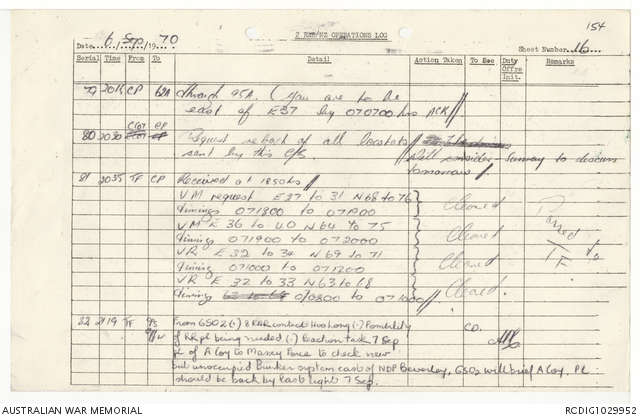 154
2 RAR/NZ OPERATIONS LOG
Date 6 / Sep / 1970
Sheet Number 16
Serial Time From To Detail Action Taken To Sec Duty Offrs Init. Remarks
79 2016 CP 62A through 95A. (You are to be
east of E37 by 070700 hrs ACK//
80 2030 CP Request reback of all locstats //
sent by this C/S. Will consider - Sunray to discuss
tomorrow //
81 2035 TF CP Received at 1850hrs //
VM request E27 to 31 N68 to 76 Cleared
timings 071800 to 071900
VM E 36 to 40 N64 to 75 Cleared Passed to
timings 071900 to 072000 TF
VR E 32 to 34 N69 to 71 Cleared
timing 071000 to 071200
VR E 32 to 33 N63 to 68 Cleared.
timing 070800 to 071000 //
82 2119 TF From GSO2 (.) 8 RAR contact Hoa Long (.) Possibility CO.
of RR pl being needed (.) Reaction task 7 Sep
pl of A Coy to Massey Force to check new
but unoccupied Bunker system east of NDP Beverley, GSO2 will brief A Coy. Pl
should be back by last light 7 Sep.
AUSTRALIAN WAR MEMORIAL
RCDIG1029952